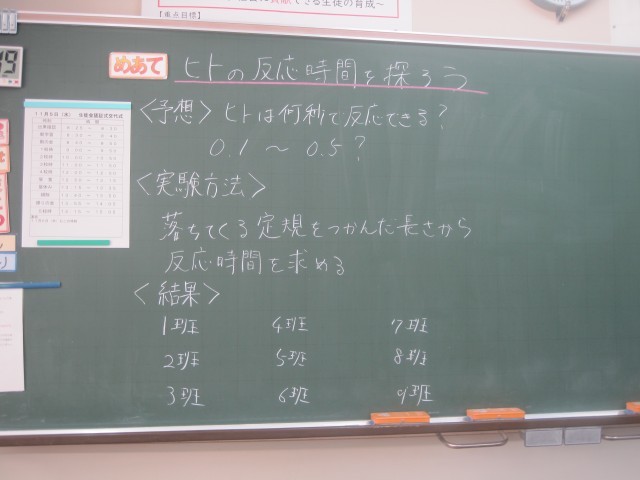 に貢献できる生徒の育成～
【重点目標】
19
めあて
ヒトの反応時間を探ろう
<予想> ヒトは何秒で反応できる?
0.1 ～ 0.5?
<実験方法>
落ちてくる定規をつかんだ長さから
反応時間を求める
<結果>
1班 4班 7班
2班 5班 8班
3班 6班 9班